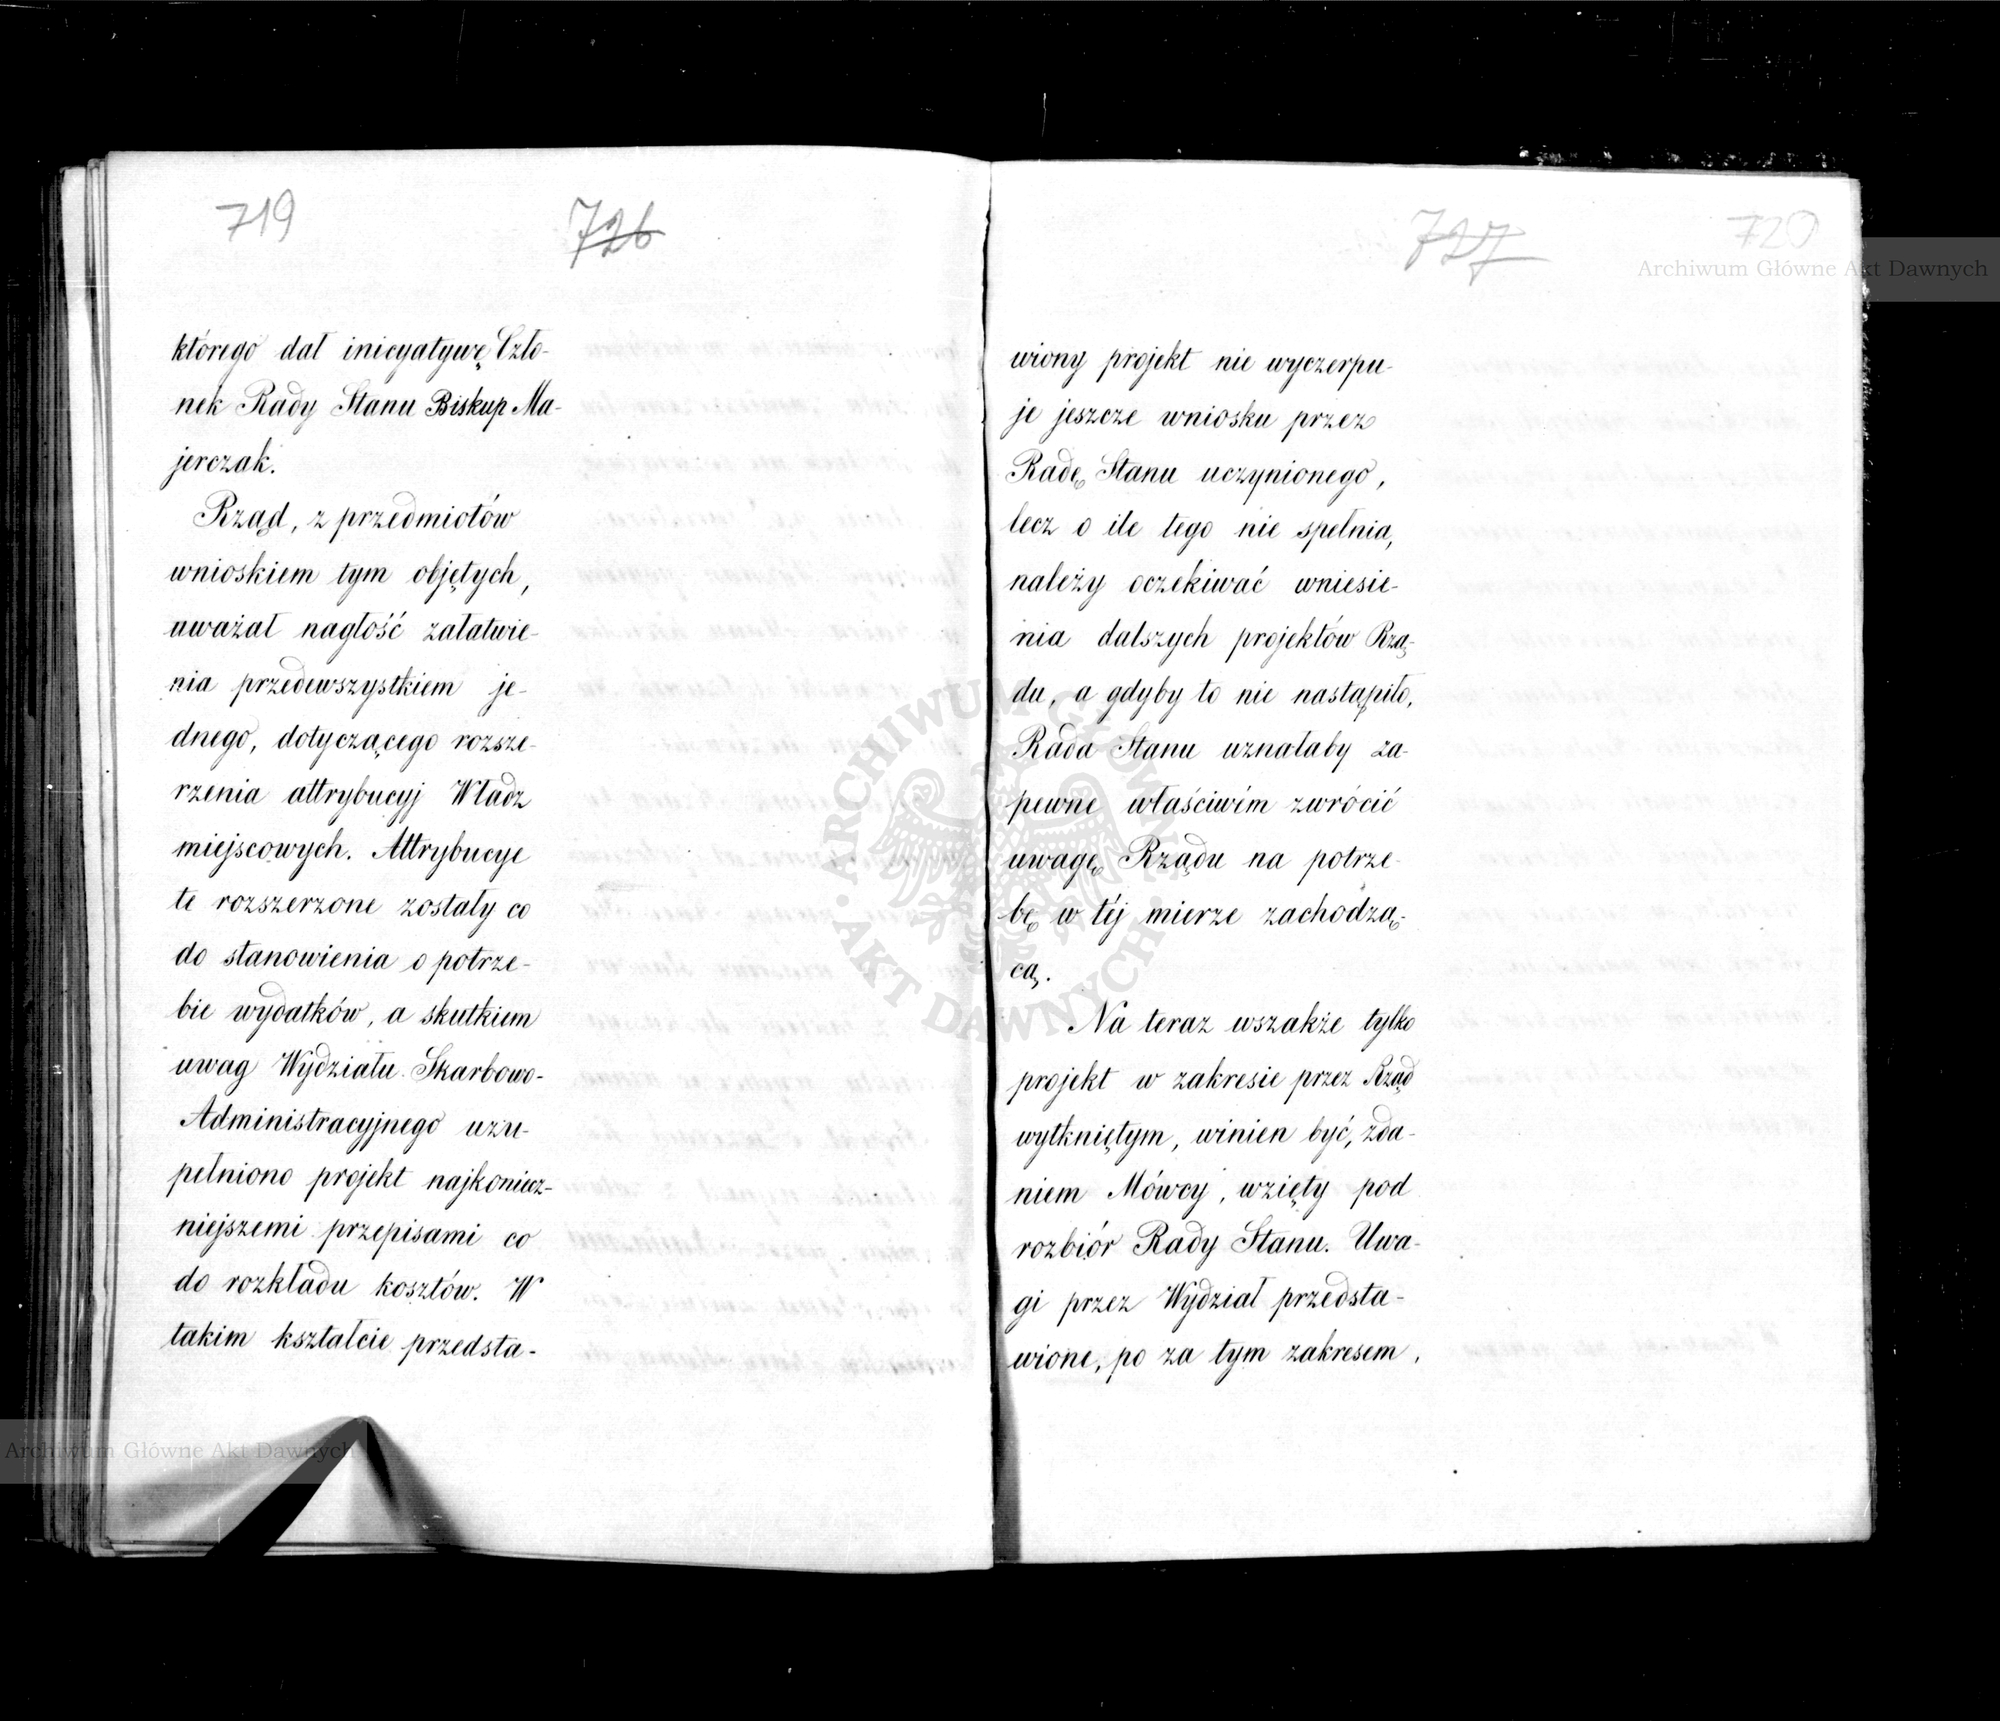 719
726
którego dał inicyatywę Czło-
nek Rady Stanu Biskup Ma-
jerczak.
Rząd, z przedmiotów
wnioskiem tym objętych,
uważał nagłość załatwie-
nia przedewszystkiem je-
dnego, dotyczącego rozsze-
rzenia attrybucyj Władz
miejscowych. Attrybucye
te rozszerzone zostały co
do stanowienia o potrze-
bie wydatków, a skutkiem
uwag Wydziału Skarbowo-
Administracyjnego uzu-
pełniono projekt najkoniecz-
niejszemi przepisami co
do rozkładu kosztów. W
takim kształcie przedsta-
727
720
wiony projekt nie wyczerpu-
je jeszcze wniosku przez
Radę Stanu uczynionego,
lecz o ile tego nie spełnia,
należy oczekiwać wniesie-
nia dalszych projektów Rzą-
du, a gdyby to nie nastąpiło,
Rada Stanu uznałaby za-
pewne właściwém zwrócić
uwagę Rządu na potrze-
bę w téj mierze zachodzą-
cą.
Na teraz wszakże tylko
projekt w zakresie przez Rząd
wytkniętym, winien być, zda-
niem Mówcy, wzięty pod
rozbiór Rady Stanu. Uwa-
gi przez Wydział przedsta-
wione, po za tym zakresem,
Archiwum Główne Akt Dawnych
Archiwum Główne Akt Dawnych
ARCHIWUM GŁÓWNE
AKT DAWNYCH